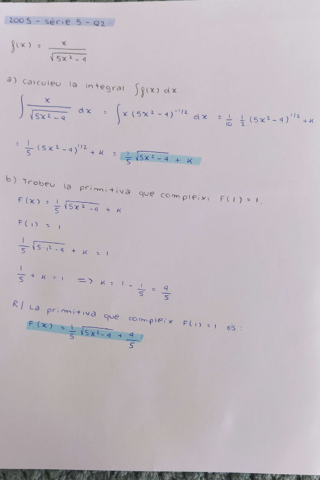 2005 - sèrie 5 - Q2
f(x) = x / √(5x²-4)
a) calculeu la integral ∫f(x) dx
∫ x / √(5x²-4) dx = ∫ x (5x²-4)^(-1/2) dx = 1/10 · 1/2 (5x²-4)^(-1/2) + K
= 1/5 (5x²-4)^(1/2) + K = 1/5 √(5x²-4) + K
b) Trobeu la primitiva que compleixi F(1) = 1.
F(x) = 1/5 √(5x²-4) + K
F(1) = 1
1/5 √(5·1²-4) + K = 1
1/5 + K = 1 => K = 1 - 1/5 = 4/5
R/ La primitiva que compleix F(1) = 1 és:
F(x) = 1/5 √(5x²-4) + 4/5